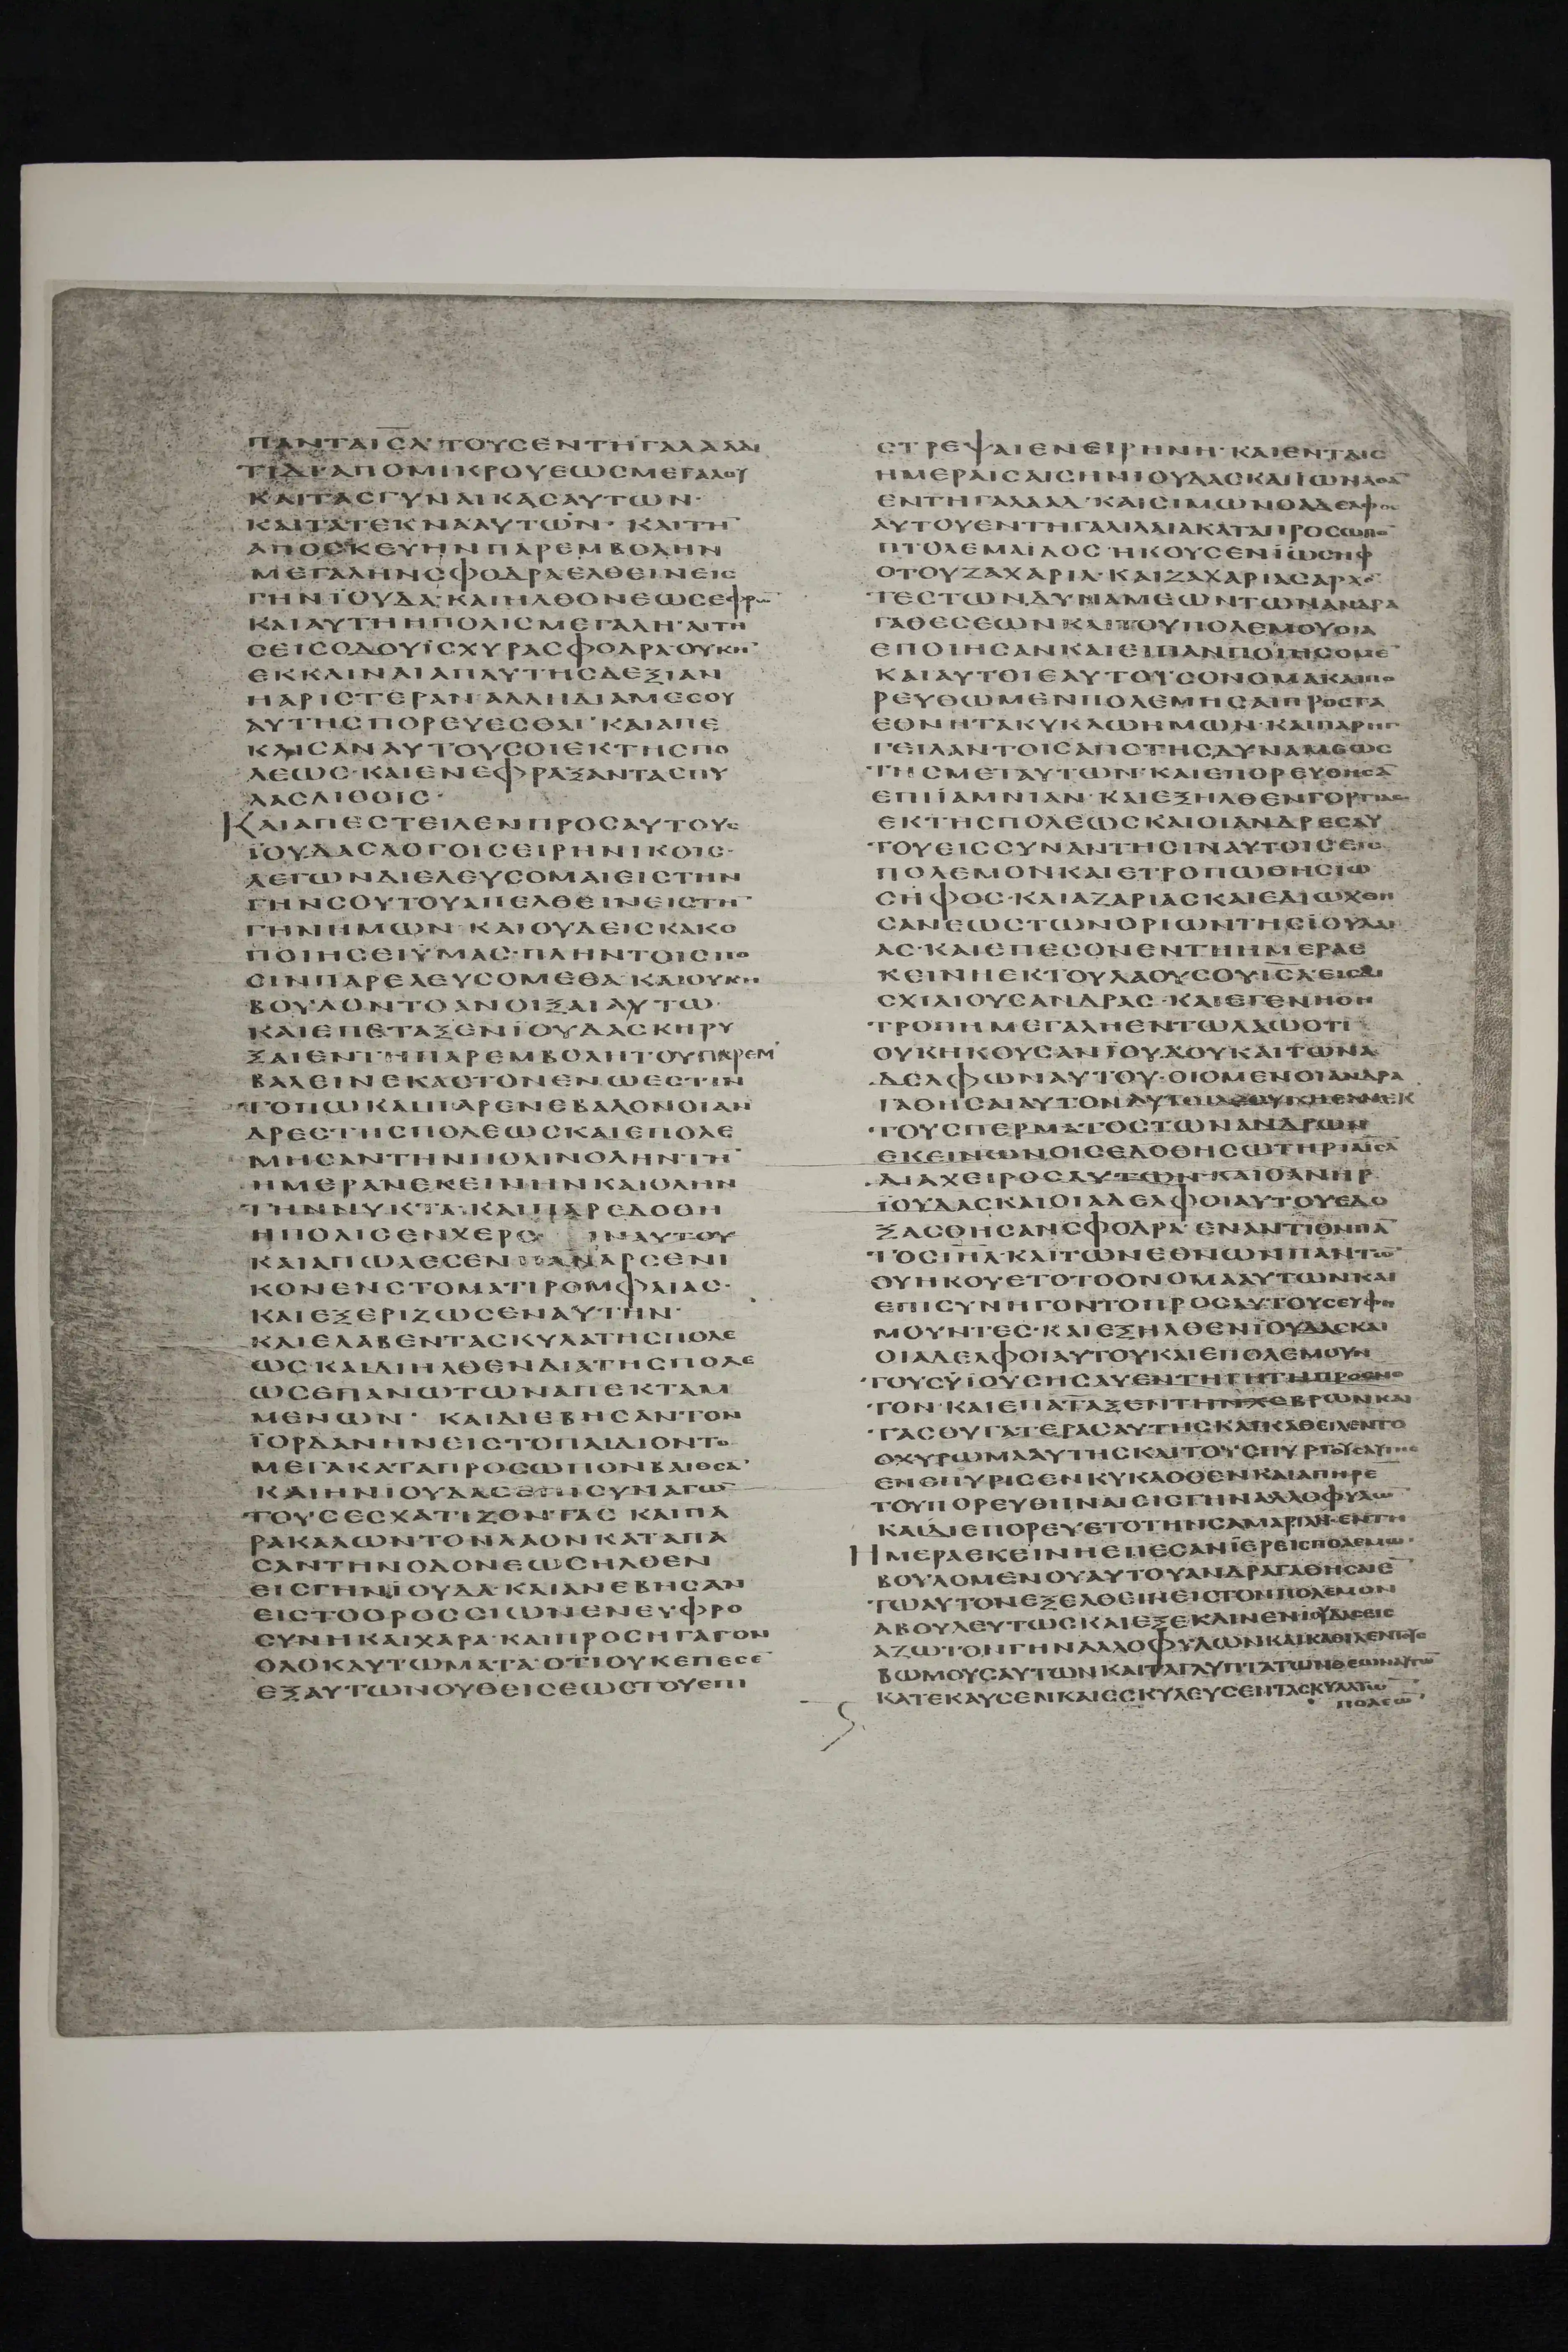 ΠΑΝΤΑΙΣΛ·ΤΟΥΣΕΝΤΗΓΑΛΑΑΔΙ
ΤΙΔΑΡΑΠΟΜΙΚΡΟΥΕΩΣΜΕΓΑΛΟΥ
ΚΑΙΤΑΣΓΥΝΑΙΚΑΣΑΥΤΩΝ·
ΚΑΙΤΑΤΕΚΝΑΑΥΤΩΝ· ΚΑΙΤΗ¯
ΑΠΟΣΚΕΥΗΝΠΑΡΕΜΒΟΛΗΝ
ΜΕΓΑΛΗΝΣΦΟΔΡΑΕΛΘΕΙΝΕΙΣ
ΓΗΝΪΟΥΔΑ·ΚΑΙΗΛΘΟΝΕΩΣΕΦΡΩ¯
ΚΑΙΑΥΤΗΗΠΟΛΙΣΜΕΓΑΛΗ·ΑΙΤΗ
ΣΕΙΣΟΔΟΥΪΣΧΥΡΑΣΦΟΔΡΑ·ΟΥΚΗ¯
ΕΚΚΛΙΝΑΙΑΠΑΥΤΗΣΔΕΞΙΑΝ
ΗΑΡΙΣΤΕΡΑΝ·ΑΛΛΗΔΙΑΜΕΣΟΥ
ΑΥΤΗΣΠΟΡΕΥΕΣΘΑΙ·ΚΑΙΑΠΕ
ΚΛΙΣΑΝΑΥΤΟΥΣΟΙΕΚΤΗΣΠΟ
ΛΕΩΣ·ΚΑΙΕΝΕΦΡΑΞΑΝΤΑΣΠΥ
ΛΑΣΛΙΘΟΙΣ·
ΚΑΙΑΠΕΣΤΕΙΛΕΝΠΡΟΣΑΥΤΟΥΣ
ΪΟΥΔΑΣΛΟΓΟΙΣΕΙΡΗΝΙΚΟΙΣ·
ΛΕΓΩΝΔΙΕΛΕΥΣΟΜΑΙΕΙΣΤΗΝ
ΓΗΝΣΟΥΤΟΥΑΠΕΛΘΕΙΝΕΙΣΤΗ¯
ΓΗΝΗΜΩΝ·ΚΑΙΟΥΔΕΙΣΚΑΚΟ
ΠΟΙΗΣΕΙΫΜΑΣ·ΠΛΗΝΤΟΙΣΠΟ
ΣΙΝΠΑΡΕΛΕΥΣΟΜΕΘΑ·ΚΑΙΟΥΚΗ
ΒΟΥΛΟΝΤΟΑΝΟΙΞΑΙΑΥΤΩ·
ΚΑΙΕΠΕΤΑΞΕΝΪΟΥΔΑΣΚΗΡΥ
ΞΑΙΕΝΤΗΠΑΡΕΜΒΟΛΗΤΟΥΠΑΡΕΜ
ΒΑΛΕΙΝΕΚΑΣΤΟΝΕΝΩΕΣΤΙΝ
ΤΟΠΩΚΑΙΠΑΡΕΝΕΒΑΛΟΝΟΙΑΝ
ΔΡΕΣΤΗΣΠΟΛΕΩΣΚΑΙΕΠΟΛΕ
ΜΗΣΑΝΤΗΝΠΟΛΙΝΟΛΗΝΤΗ¯
ΗΜΕΡΑΝΕΚΕΙΝΗΝΚΑΙΟΛΗΝ
ΤΗΝΝΥΚΤΑ·ΚΑΙΠΑΡΕΔΟΘΗ
ΗΠΟΛΙΣΕΝΧΕΡΣ ΙΝΑΥΤΟΥ
ΚΑΙΑΠΩΛΕΣΕΝΠΑΝΑΡΣΕΝΙ
ΚΟΝΕΝΣΤΟΜΑΤΙΡΟΜΦΑΙΑΣ·
ΚΑΙΕΞΕΡΙΖΩΣΕΝΑΥΤΗΝ·
ΚΑΙΕΛΑΒΕΝΤΑΣΚΥΛΑΤΗΣΠΟΛΕ
ΩΣ·ΚΑΙΔΙΗΛΘΕΝΔΙΑΤΗΣΠΟΛΕ
ΩΣΕΠΑΝΩΤΩΝΑΠΕΚΤΑΜ
ΜΕΝΩΝ· ΚΑΙΔΙΕΒΗΣΑΝΤΟΝ
ΪΟΡΔΑΝΗΝΕΙΣΤΟΠΑΙΔΙΟΝΤΟ
ΜΕΓΑΚΑΤΑΠΡΟΣΩΠΟΝΒΑΙΘΣΑ¯
ΚΑΙΗΝΙΟΥΔΑΣΕΠΙΣΥΝΑΓΩ¯
ΤΟΥΣΕΣΧΑΤΙΖΟΝΤΑΣ ΚΑΙΠΑ
ΡΑΚΑΛΩΝΤΟΝΛΑΟΝΚΑΤΑΠΑ
ΣΑΝΤΗΝΟΔΟΝΕΩΣΗΛΘΕΝ
ΕΙΣΓΗΝΪΟΥΔΑ·ΚΑΙΑΝΕΒΗΣΑΝ
ΕΙΣΤΟΟΡΟΣΣΙΩΝΕΝΕΥΦΡΟ
ΣΥΝΗΚΑΙΧΑΡΑ·ΚΑΙΠΡΟΣΗΓΑΓΟΝ
ΟΛΟΚΑΥΤΩΜΑΤΑ·ΟΤΙΟΥΚΕΠΕΣΕ¯
ΕΞΑΥΤΩΝΟΥΘΕΙΣΕΩΣΤΟΥΕΠΙ
ΣΤΡΕΨΑΙΕΝΕΙΡΗΝΗ·ΚΑΙΕΝΤΑΙΣ
ΗΜΕΡΑΙΣΑΙΣΗΝΙΟΥΔΑΣΚΑΙΪΩΝΑΘΑ¯
ΕΝΤΗΓΑΛΑΑΔ·ΚΑΙΣΙΜΩΝΟΑΔΕΛΦΟΣ
ΑΥΤΟΥΕΝΤΗΓΑΛΙΛΑΙΑΚΑΤΑΠΡΟΣΩΠΟ¯
ΠΤΟΛΕΜΑΪΔΟΣ·ΗΚΟΥΣΕΝΪΩΣΗΦ
ΟΤΟΥΖΑΧΑΡΙΑ·ΚΑΙΖΑΧΑΡΙΑΣΑΡΧΟ¯
ΤΕΣΤΩΝΔΥΝΑΜΕΩΝΤΩΝΑΝΔΡΑ
ΓΑΘΕΣΕΩΝΚΑΙΤΟΥΠΟΛΕΜΟΥΟΙΑ
ΕΠΟΙΗΣΑΝΚΑΙΕΙΠΑΝΠΟΙΗΣΟΜΕ¯
ΚΑΙΑΥΤΟΙΕΑΥΤΟΙΣΟΝΟΜΑΚΑΙΠΟ
ΡΕΥΘΩΜΕΝΠΟΛΕΜΗΣΑΙΠΡΟΣΤΑ
ΕΘΝΗΤΑΚΥΚΛΩΗΜΩΝ·ΚΑΙΠΑΡΗΓ
ΓΕΙΛΑΝΤΟΙΣΑΠΟΤΗΣΔΥΝΑΜΕΩΣ
ΤΗΣΜΕΤΑΥΤΩΝ·ΚΑΙΕΠΟΡΕΥΘΗΣΑ¯
ΕΠΙΪΑΜΝΙΑΝ·ΚΑΙΕΞΗΛΘΕΝΓΟΡΓΙΑΣ
ΕΚΤΗΣΠΟΛΕΩΣΚΑΙΟΙΑΝΔΡΕΣΑΥ
ΤΟΥΕΙΣΣΥΝΑΝΤΗΣΙΝΑΥΤΟΙΣΕΙΣ
ΠΟΛΕΜΟΝΚΑΙΕΤΡΟΠΩΘΗΣΙΩ
ΣΗΦΟΣ·ΚΑΙΑΖΑΡΙΑΣΚΑΙΕΔΙΩΧΘΗ
ΣΑΝΕΩΣΤΩΝΟΡΙΩΝΤΗΣΪΟΥΔΑΙ
ΑΣ·ΚΑΙΕΠΕΣΟΝΕΝΤΗΗΜΕΡΑΕ
ΚΕΙΝΗΕΚΤΟΥΛΑΟΥΣΟΥΙΣΛΕΙΣΔΙ
ΣΧΙΛΙΟΥΣΑΝΔΡΑΣ·ΚΑΙΕΓΕΝΗΘΗ
ΤΡΟΠΗΜΕΓΑΛΗΕΝΤΩΛΑΩΟΤΙ
ΟΥΚΗΚΟΥΣΑΝΪΟΥΔΟΥΚΑΙΤΩΝΑ
ΔΕΛΦΩΝΑΥΤΟΥ·ΟΙΟΜΕΝΟΙΑΝΔΡΑ
ΓΑΘΗΣΑΙΑΥΤΟΝΑΥΤΟΙΔΕΟΥΚΗΣΑΝΕΚ
ΤΟΥΣΠΕΡΜΑΤΟΣΤΩΝΑΝΔΡΩΝ
ΕΚΕΙΝΩΝΟΙΣΕΔΟΘΗΣΩΤΗΡΙΑΙΣΛ
ΔΙΑΧΕΙΡΟΣΑΥΤΩΝ·ΚΑΙΟΑΝΗΡ
ΪΟΥΔΑΣΚΑΙΟΙΑΔΕΛΦΟΙΑΥΤΟΥΕΔΟ
ΞΑΣΘΗΣΑΝΣΦΟΔΡΑ·ΕΝΑΝΤΙΟΝΠΑ¯
ΤΟΣΙΗΛ·ΚΑΙΤΩΝΕΘΝΩΝΠΑΝΤΩ¯
ΟΥΗΚΟΥΕΤΟΤΟΟΝΟΜΑΑΥΤΩΝΚΑΙ
ΕΠΙΣΥΝΗΓΟΝΤΟΠΡΟΣΑΥΤΟΥΣΕΥΦΗ
ΜΟΥΝΤΕΣ·ΚΑΙΕΞΗΛΘΕΝΪΟΥΔΑΣΚΑΙ
ΟΙΑΔΕΛΦΟΙΑΥΤΟΥΚΑΙΕΠΟΛΕΜΟΥΝ
ΤΟΥΣΫΙΟΥΣΗΣΑΥΕΝΤΗΓΗΤΗΠΡΟΣΝΟ
ΤΟΝ·ΚΑΙΕΠΑΤΑΞΕΝΤΗΝΧΕΒΡΩΝΚΑΙ
ΤΑΣΘΥΓΑΤΕΡΑΣΑΥΤΗΣΚΑΙΚΑΘΕΙΛΕΝΤΟ
ΟΧΥΡΩΜΑΑΥΤΗΣΚΑΙΤΟΥΣΠΥΡΓΟΥΣΑΥΤΗΣ
ΕΝΕΠΥΡΙΣΕΝΚΥΚΛΟΘΕΝΚΑΙΑΠΗΡΕ¯
ΤΟΥΠΟΡΕΥΘΗΝΑΙΕΙΣΓΗΝΑΛΛΟΦΥΛΩ¯
ΚΑΙΔΙΕΠΟΡΕΥΕΤΟΤΗΝΣΑΜΑΡΙΑΝ·ΕΝΤΗ
ΗΜΕΡΑΕΚΕΙΝΗΕΠΕΣΑΝΪΕΡΕΙΣΠΟΛΕΜΩ·
ΒΟΥΛΟΜΕΝΟΥΑΥΤΟΥΑΝΔΡΑΓΑΘΗΣΑΙΕ¯
ΤΩΑΥΤΟΝΕΞΕΛΘΕΙΝΕΙΣΤΟΝΠΟΛΕΜΟΝ
ΑΒΟΥΛΕΥΤΩΣΚΑΙΕΞΕΚΛΙΝΕΝΙΟΥΔΑΣΕΙΣ
ΑΖΩΤΟΝΓΗΝΑΛΛΟΦΥΛΩΝΚΑΙΚΑΘΙΛΕΝΤΟΥΣ
ΒΩΜΟΥΣΑΥΤΩΝΚΑΙΤΑΓΛΥΠΤΑΤΩΝΘΕΩΝΑΥΤΩ¯
ΚΑΤΕΚΑΥΣΕΝΚΑΙΕΣΚΥΛΕΥΣΕΝΤΑΣΚΥΛΑΤΩ¯
ΠΟΛΕΩ¯